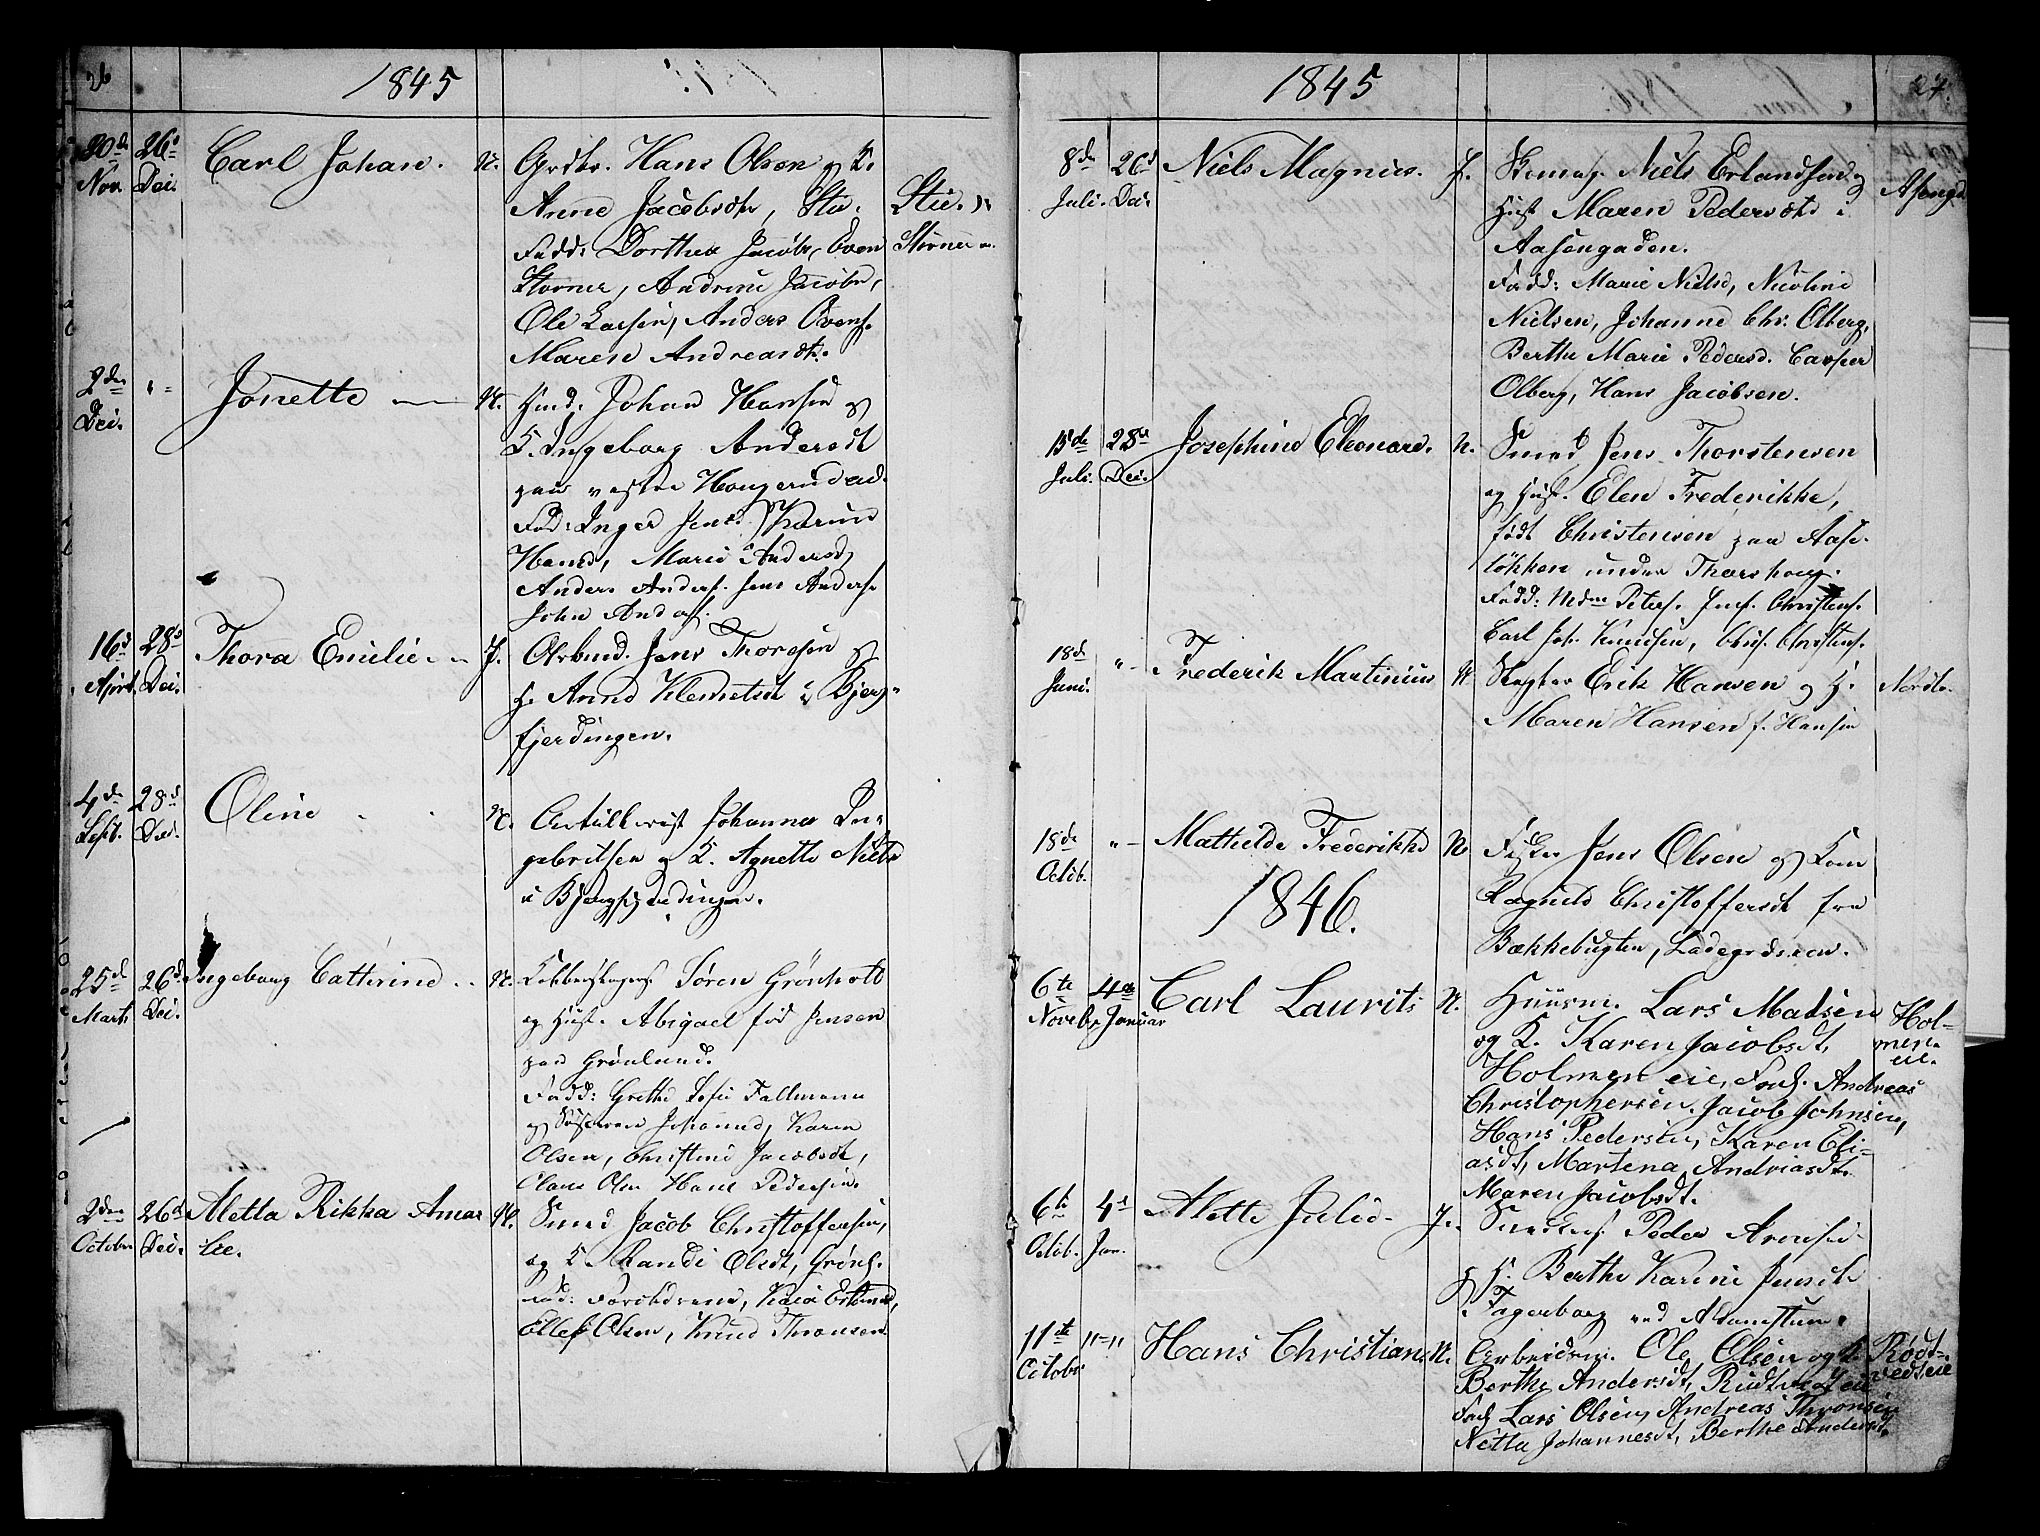 26
1845
20de Nov. 26de Dec. Carl Johan. N. Grdbr. Hans Olsen og K.
Anne Jacobsdtr, Stu.
Fadd: Dorthea Jacobs, Even
Storner, Andrine Jacobs,
Ole Larsen, Anders Evens.
Maren Andreasdt.
Stie.
Storner
2den Dec. Jonette N. Johan Hansen og
K. Ingeborg Andersdt
paa vestre Haugerud
Fad: Inger Jens. Karine
Hansd, Marie Andersd,
Anders Anders. Jens Anders.
John Anders.
16d April. 28d Dec. Thora Emilie J. Jens Thoresen og
H. Anne Klemetsd i Bjerg-
fjerdingen.
4de Sept. 28d Dec. Oline N. Johannes In-
gebritsen og K. Agnette Niels
i Bjergfjerdingen.
25d Marts 26d Dec. Ingeborg Cathrine N. Kobberslager Søren Grönholt
og Hust. Abigael fød Jensen
paa Grönlund.
Fadd: Grethe Sofie Fallmann
og Johanne, Karen
Olsen, Christine Jacobsdt,
Claus Olsen Hans Pedersen.
2den Octobr. 26d Dec. Aletta Rikka Ama- N. Smed Jacob Christoffersen,
lie. og K Randi Olsdt, Grönl.
Fad: Forældrene,
Ellef Olsen, Knud Thronsen
27
1845
8de Juli. 26d Dec. Niels Magnus. J. Skomag. Niels Erlandsen og
Hust Maren Pedersdt i
Aasengaden.
Fadd: Marie Nielsd, Nicoline
Nielsen, Johanne Chr. Olberg,
Berthe Marie Pedersd. Casper
Olberg, Hans Jacobsen.
15de Juli. 28d Dec. Josephine Eleonore. N. Smed Jens Thorstensen
og Hust. Elen Frederikke,
født Christensen paa Aase-
løkken under Thorshoug.
Fadd: Mdm Peters. Jens Christens.
Carl Joh. Knudsen, Chris. Christens.
18de Juni. Frederik Martinius N Slagter Erik Hansen og H.
Maren Hansen f. Hansen
18de Octb. Mathilde Frederikke N. Fisker Jens Olsen og Kone
Ragnild Christoffersdt fra
Bækkebugten, Ladegrdsøen.
1846.
6te Novebr 4de Januar Carl Laurits N. Huusm. Lars Madsen
og K. Karen Jacobsdt,
Holmen eie, Fad. Andreas
Christophersen. Jacob Johnsen,
Hans Pedersen, Karen Eli-
asdt, Martena Andriasdt.
Maren Jacobsdt.
Hol-
men-
eie.
6te Octb. 4d Jan. Alette Julie J. Peder Arnsen
og H. Berthe Karine Jensdt
Fagerborg ved Adamstuen.
11te Octobr Hans Christian. N. Arbeidsm. Ole Olsen og K.
Berthe Andersdt, Rødtvedt eie
Fad. Lars Olsen, Andreas Thronsen
Netta Johannesdt, Berthe Andersdt.
Rødt-
vedt eie